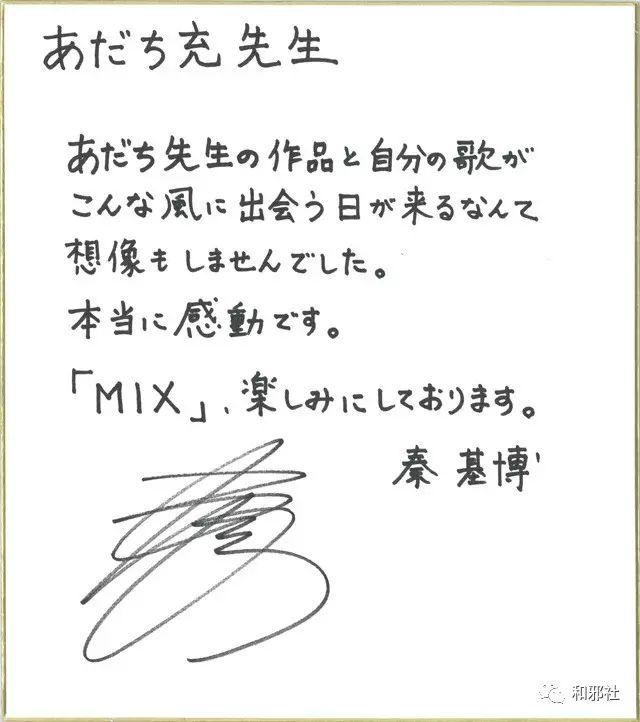 あだち充先生
あだち先生の作品と自分の歌が
こんな風に出会う日が来るなんて
想像もしませんでした。
本当に感動です。
「MIX」、楽しみにしております。
秦 基博
和邪社